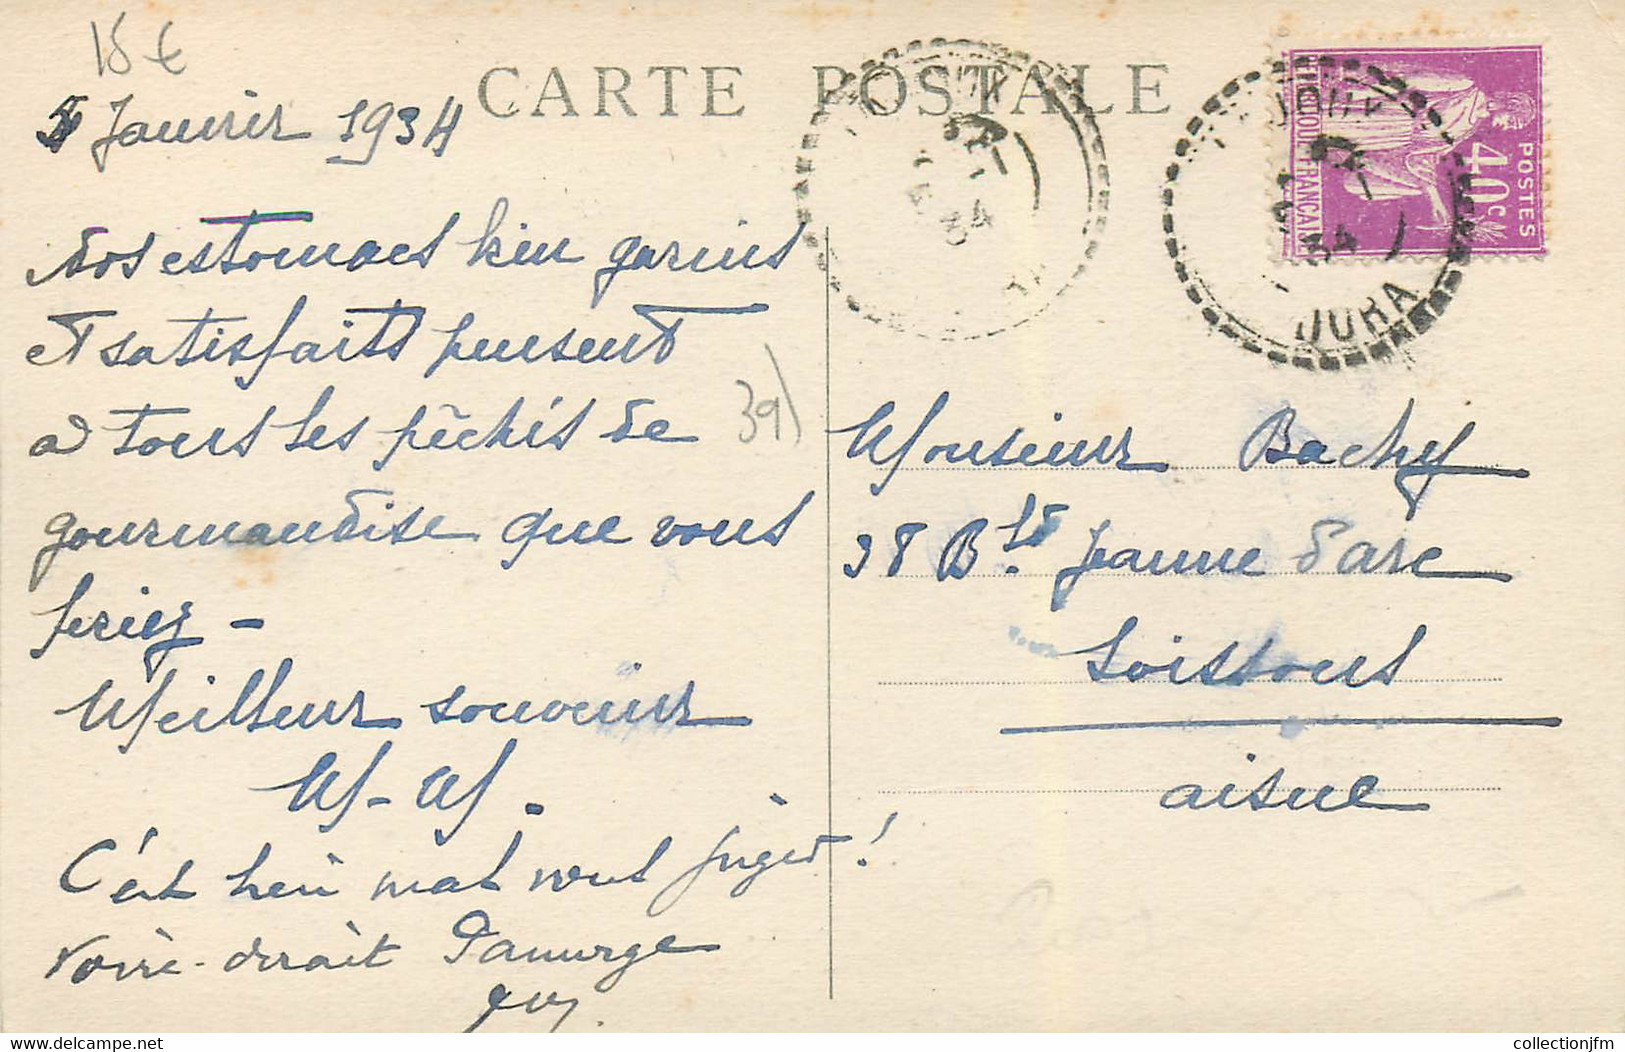 15 €
CARTE POSTALE
5 Janvier 1934
Nos estomacs bien garnis
et satisfaits pensent
a tous les péchés de
gourmandise que vous
feriez -
Meilleur souvenir
M-M.
C'est bien mal vous juger !
Voire. dirait Panurge
39)
POSTES
40c
REPUBLIQUE FRANÇAISE
34
34
JURA
Monsieur Bachy
38 Bd. Jeanne d'arc
Soissons
aisne
collectionjfm